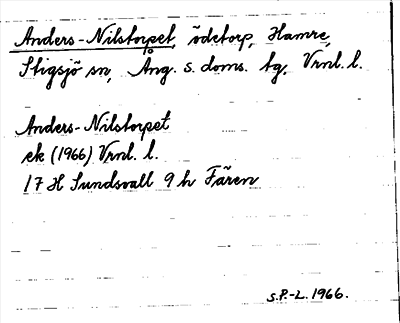 Anders-Nilstorpet, ödetorp, Hamre,
Stigsjö sn, Ång. s. doms. tg, Vrnl. l.
Anders-Nilstorpet
ek (1966) Vrnl. l.
17 H Sundsvall 9 h Fären
S.P.-L. 1966.